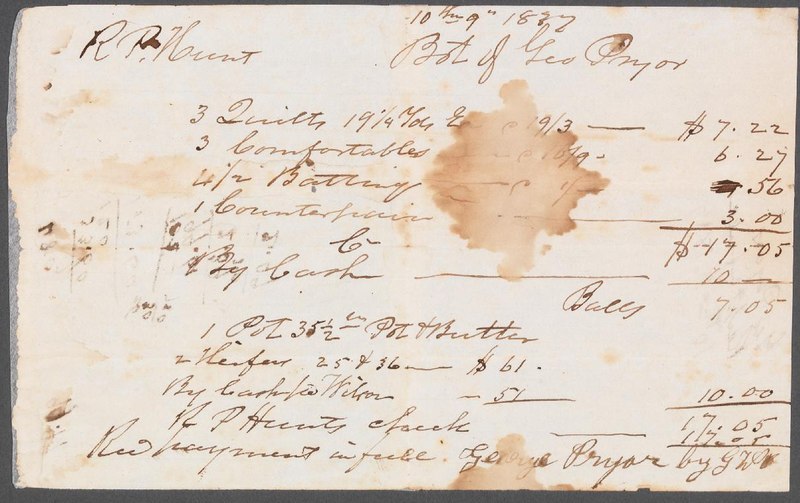 10th 9" 1837
R P. Hunt Bot of Geo Pryor
3 Quilts 19 1/4 Yds @ 19/3 — $ 7.22
3 Comfortables — @ 10/9 - 6.27
4 1/2 Batting — @ 1/- .56
1 Counterpain — 3.00
$ 17.05
Cr
By Cash — 10 —
Balls 7.05
1 Pot 35 1/2 Pot & Butter
2 Heifers 25 & 36 — $ 61.
By Cash Wilson — 51 — 10.00
R P Hunts check — 17.05
17.05
Recd payment in full. George Pryor by